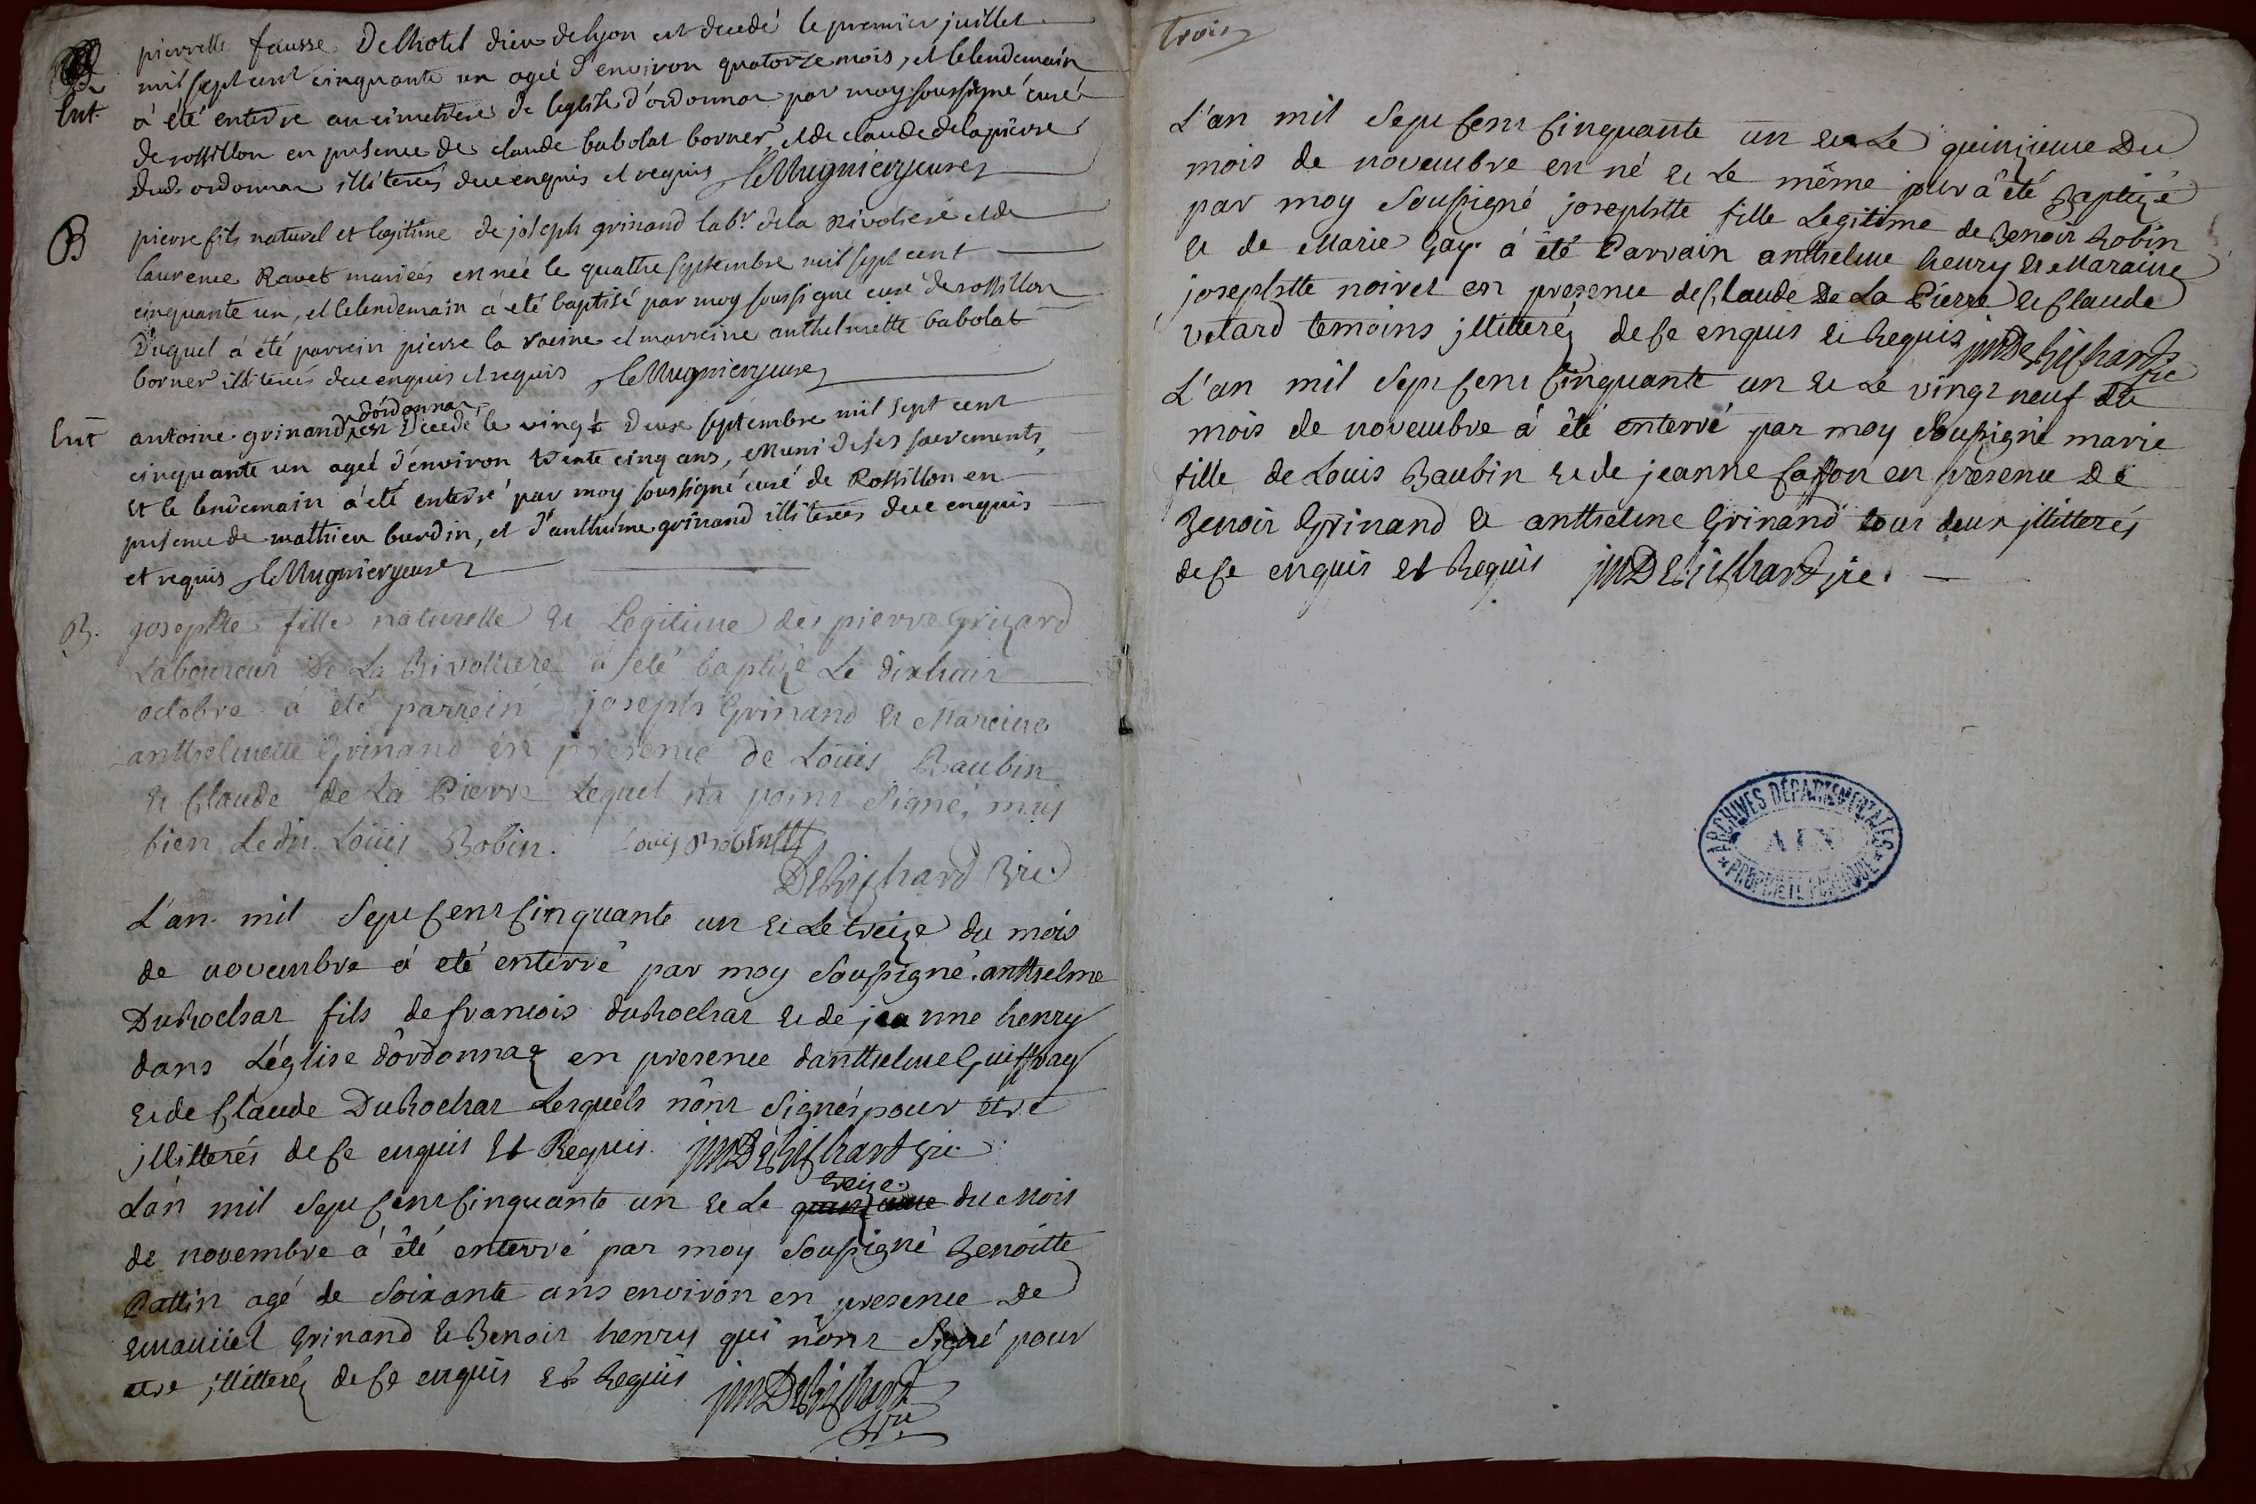 pierrette fausse De lhotel dieu de lyon est decedé le premier juillet
Ent. mil sept cent cinquante un ageé d'environ quatorze mois, et le lendemain
à été enterré au cimetiere de leglise d'ordonnaz par moy soussigné curé
de rossillon en presence de claude babolat borner, et de claude delapierre
dud. ordonnaz illiterés de ce enquis et requis
B pierre fils naturel et legitime de joseph grinand lab.r de la Rivoliere et de
laurence Ravet mariées en neé le quatre septembre mil sept cent
cinquante un, et le lendemain à eté baptisé par moy soussigné curé de rossillon
Duquel à été parrein pierre la racine et marreine anthelmette babolat
borner illiterés de ce enquis et requis
d'ordonnaz
Ent antoine grinand est Decedé le vingt deux septembre mil sept cent
cinquante un ageé d'environ trente cinq ans, Muni de ses sacrements,
et le lendemain à eté enterré par moy soussigné curé de Rossillon en
presence de mathieu burdin, et d'anthelme grinand illiterées de ce enquis
et requis
B. josephte fille naturelle et Legitime de pierre grinard
Laboureur De La Rivolliere a eté baptizé Le dixhuit
octobre à été parrein joseph Grinand et Mareine
anthelmette Grinand en presence de Louis Baubin
et Claude de La Pierre Lequel n'a point signé, mais
bien Ledit Louis Bobin. Louis Bobin
DeRichard
L'an mil sept cent Cinquante un et Le treize du mois
de novembre à eté enterré par moy soussigné anthelme
DuRochat fils de francois duRochat et de jeanne henry
dans L'église d'ordonnaz en presence danthelme Guiffray
et de Claude DuRochat Lesquels n'ont signés pour etre
illitterés de ce enquis et Requis. jmDeRichard
L'an mil sept cent Cinquante un et Le treize du Mois
de novembre à été enterré par moy soussigné Benoitte
Pattin agé de soixante ans environ en presence De
emanüel Grinand et Benoit henry qui n'ont Signé pour
etre illitteréz de ce enquis et Requis jmDeRichard
trois
L'an mil sept cent Cinquante un et Le quinzieme Du
mois de novembre en né et Le même jour a été Baptizé
par moy soussigné josephtte fille Legitime de Benoit Robin
et de Marie Gay. à été Parrain anthelme henry et Maraine
josephtte noiret en presence de Claude De La Pierre et Claude
velard temoins illitteréz de ce enquis et Requis jmDeRichard
L'an mil sept cent Cinquante un et Le vingt neuf du
mois de novembre à été enterré par moy soussigné marie
fille de Louis Baubin et de jeanne Casson en presence De
Benoit Grinand et anthelme Grinand tous deux illitterés
de ce enquis et Requis jmDeRichard
ARCHIVES DÉPARTEMENTALES
AIN
* PROPRIÉTÉ PUBLIQUE *